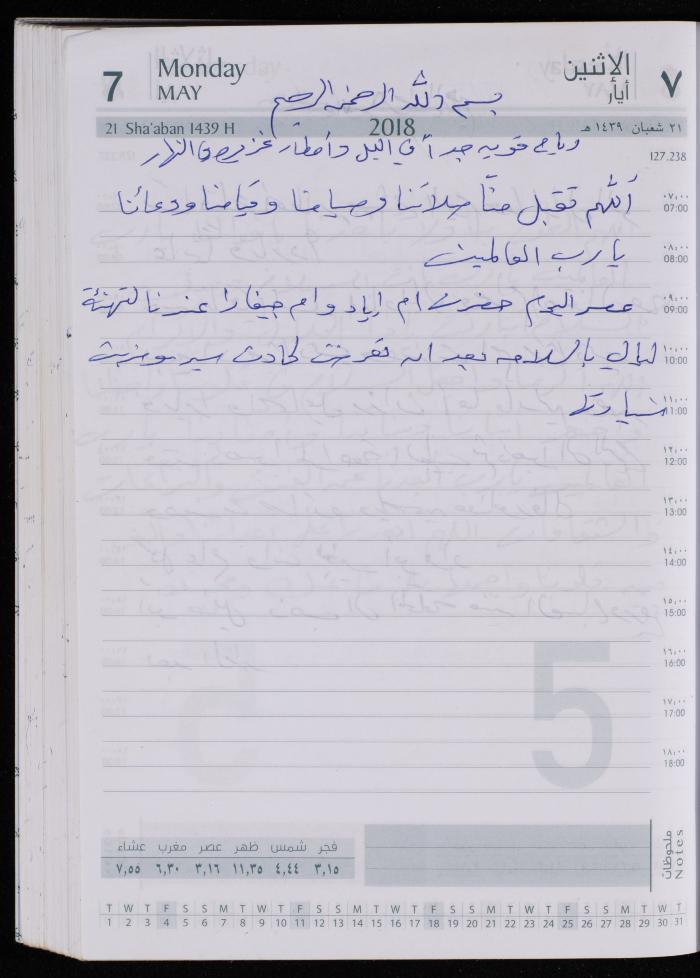 7 Monday الإثنين ٧
MAY أيار
بسم الله الرحمن الرحيم
21 Sha'aban 1439 H 2018 ٢١ شعبان ١٤٣٩ هـ
رياح قويه جداً في الليل وأمطار غزيرة في النهار
127.238
اللهم تقبل منّا صلاتنا وصيامنا وقيامنا ودعائنا
٠٧,٠٠
07:00
يا رب العالمين
٠٨,٠٠
08:00
عصر اليوم حضرت ام اياد وام جيفارا عندنا لتهنئة
٠٩,٠٠
09:00
بالسلامه بعد ان تعرضت لحادث سير
١٠,٠٠
10:00
١١,٠٠
11:00
١٢,٠٠
12:00
١٣,٠٠
13:00
١٤,٠٠
14:00
١٥,٠٠
15:00
١٦,٠٠
16:00
١٧,٠٠
17:00
١٨,٠٠
18:00
5
فجر شمس ظهر عصر مغرب عشاء
٣,١٥ ٤,٤٤ ١١,٣٥ ٣,١٦ ٦,٣٠ ٧,٥٥
ملحوظات
Notes
T W T F S S M T W T F S S M T W T F S S M T W T F S S M T W T
1 2 3 4 5 6 7 8 9 10 11 12 13 14 15 16 17 18 19 20 21 22 23 24 25 26 27 28 29 30 31